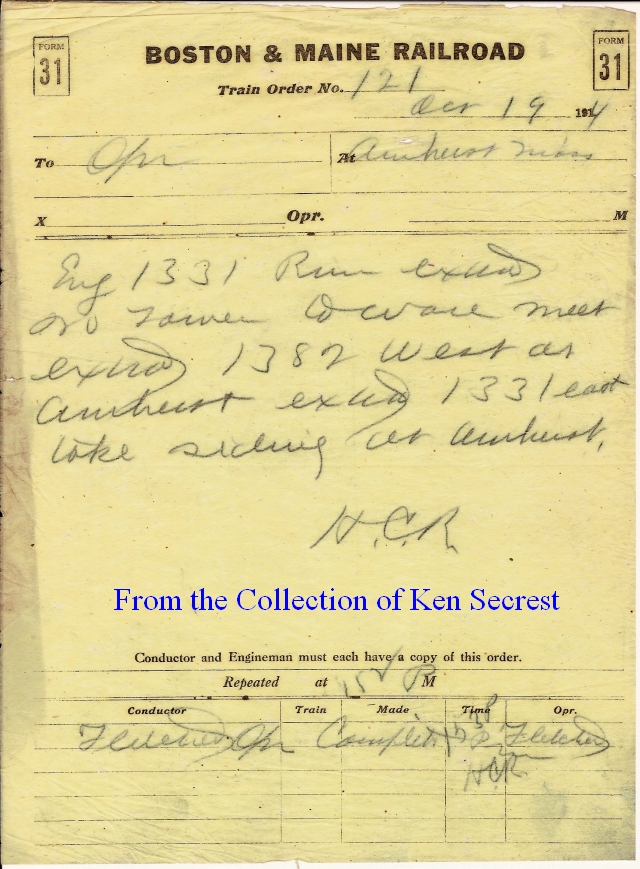 FORM 31
BOSTON & MAINE RAILROAD
FORM 31
Train Order No. 121
Oct 19 1914
To Opr At Amherst Mass
X Opr. M
Eng 1331 Run extra
No Tower to Ware meet
extra 1382 West at
Amherst extra 1331 east
take siding at Amherst.
H.C.R.
From the Collection of Ken Secrest
Conductor and Engineman must each have a copy of this order.
Repeated at 152 P M
Conductor Train Made Time Opr.
Fletcher Opr Complete P Fletcher
HCR